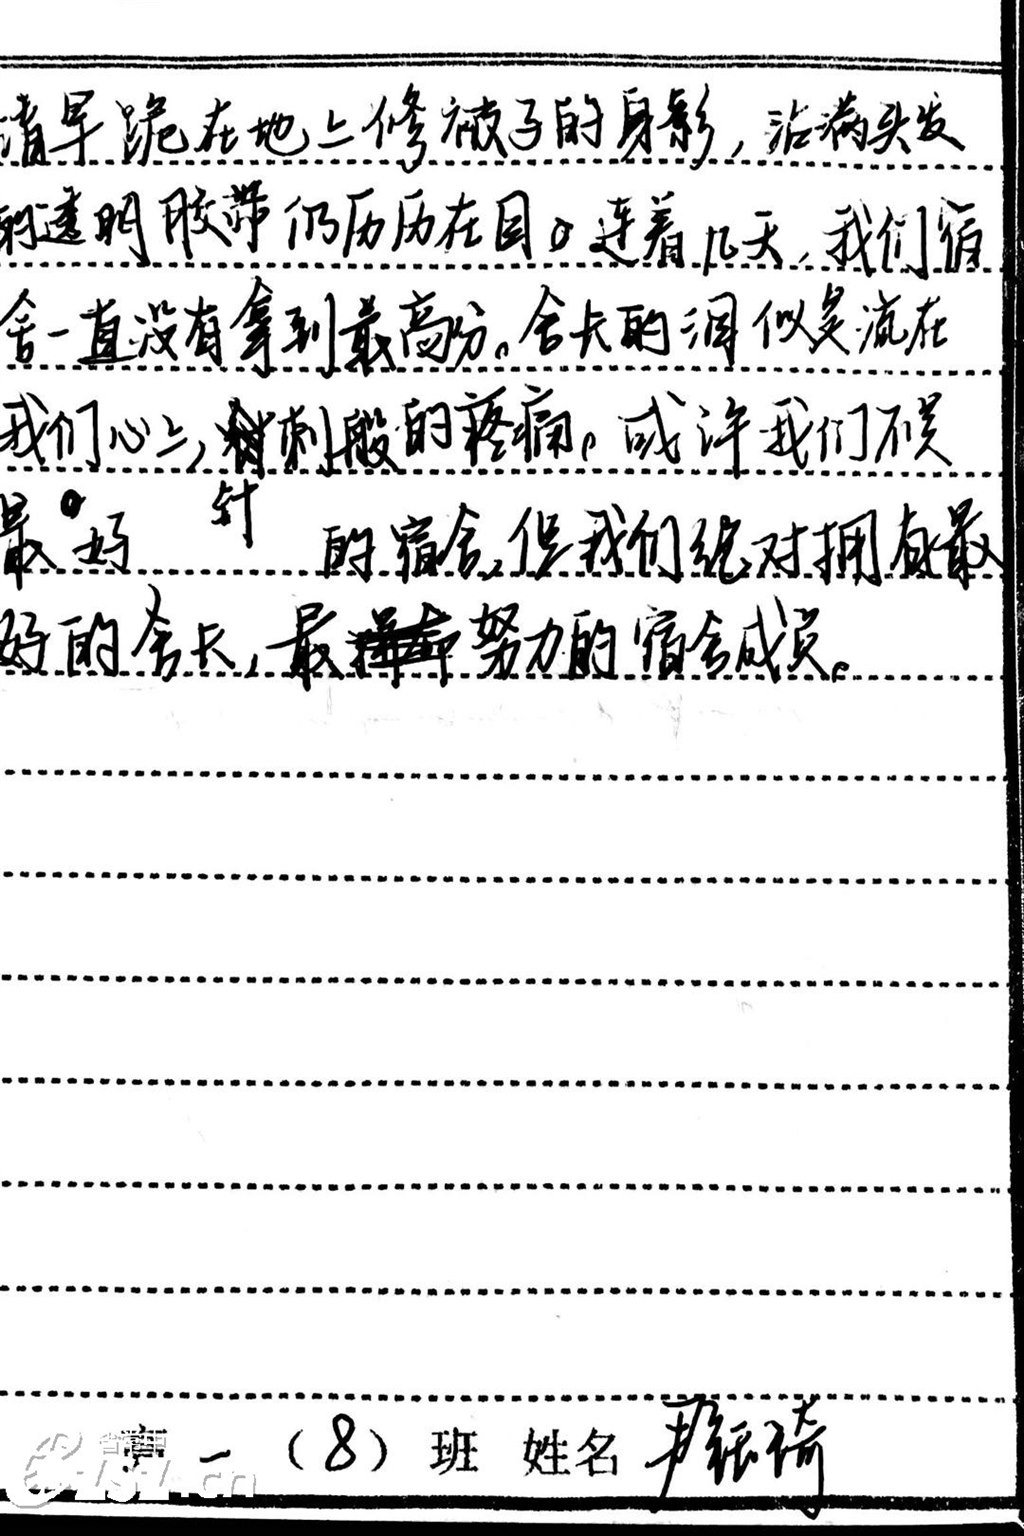 清早跪在地上修被子的身影，沾满头发
的透明胶带仍历历在目。连着几天，我们宿
舍一直没有拿到最高分。舍长的泪似是流在
我们心上，针刺般的疼痛。或许我们不是
最好的宿舍，但我们绝对拥有最
好的舍长，最努力的宿舍成员。
高一（8）班 姓名